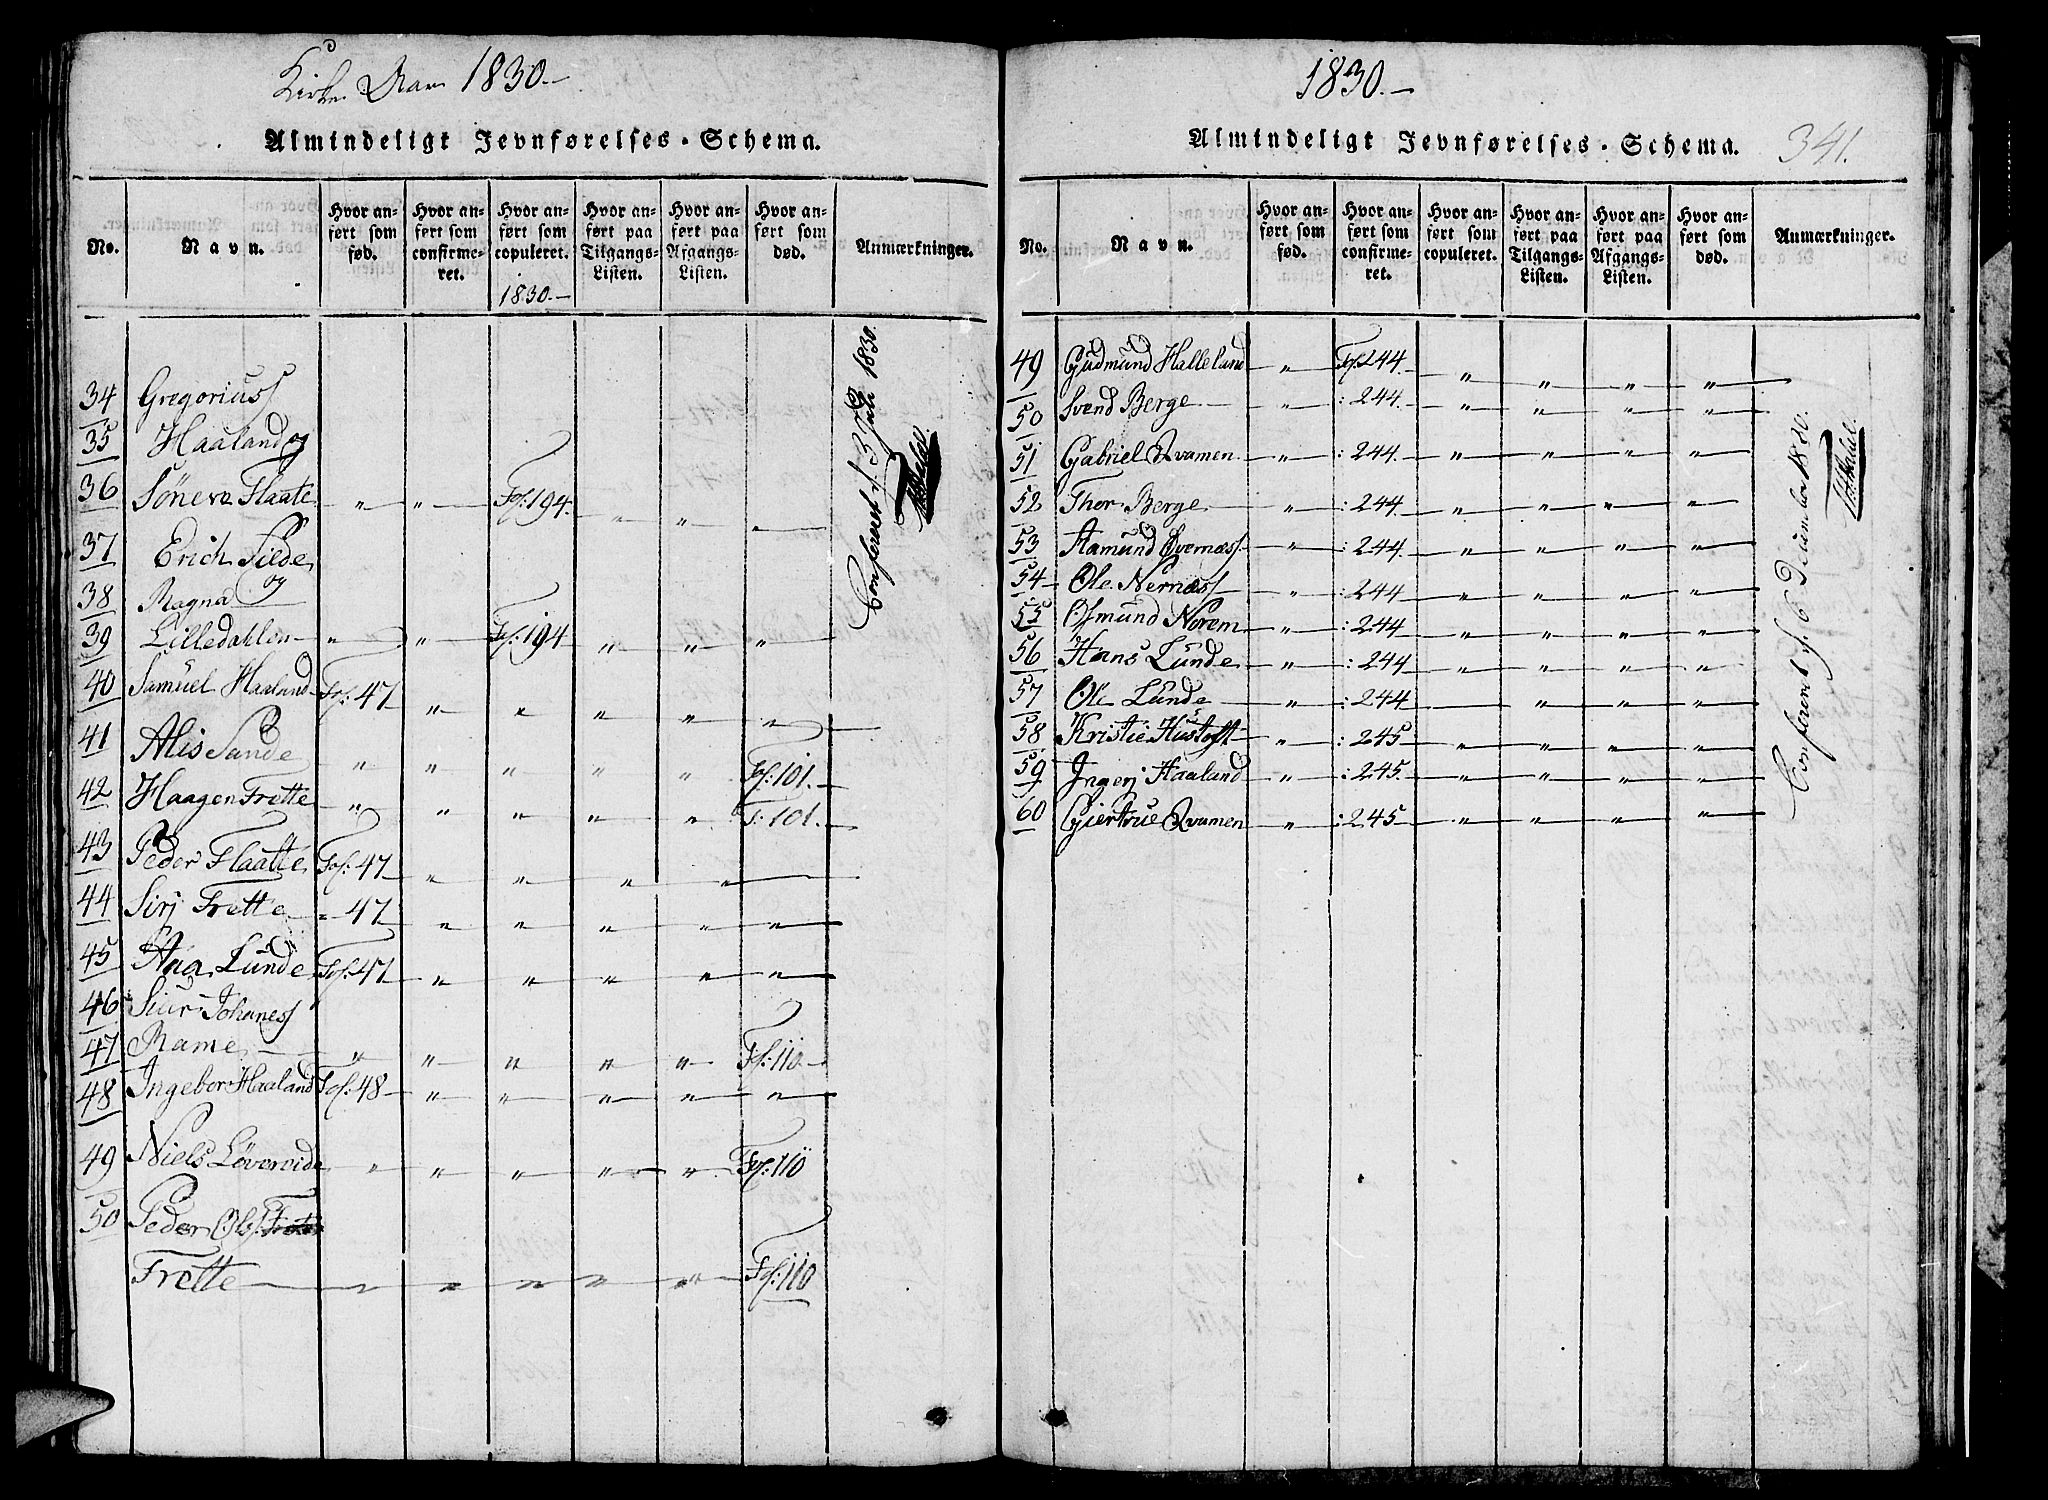 Kirke Aar 1830.
Almindeligt Jevnførelses-Schema.
No. Navn. Hvor anført som fød. Hvor anført som confirmeret. Hvor anført som copuleret. Hvor anført paa Tilgangs-Listen. Hvor anført paa Afgangs-Listen. Hvor anført som død. Anmærkninger.
1830.
34 Gregorius
35 Haaland og
36 Söneva Flaate " " Fol: 194. " " "
37 Erich Silde
og
38 Magna
39 Lilledahlen " " " Fol: 194 " " "
40 Samuel Haaland Fol: 47 " " " " "
41 Alis Sande " " " " " Fol: 101.
42 Haagen Frette " " " " " F: 101.
43 Peder Flaatte Fol: 47 " " " "
44 Sirj Frette " 47 " " " " "
45 Ana Lunde Fol: 47 " " " " "
46 Siur Johanes
47 Rame " " " " " Fol: 110.
48 Ingebor Haaland Fol: 48 " " " " "
49 Niels Lövereide " " " " " Fol: 110
50 Peder Ols
Frette " " " " " Fol: 110
Conferert d. 3 Juli 1830.
1830.
Almindeligt Jevnførelses-Schema. 341.
No. Navn. Hvor anført som fød. Hvor anført som confirmeret. Hvor anført som copuleret. Hvor anført paa Tilgangs-Listen. Hvor anført paa Afgangs-Listen. Hvor anført som død. Anmærkninger.
49 Gudmund Halleland " Fol. 244. " " " "
50 Svend Berge " : 244. " " " "
51 Gabriel Qvamen " : 244. " " " "
52 Thor Berge " : 244. " " " "
53 Aamund Övernæs " : 244. " " " "
54 Ole Nernæs " : 244 " " " "
55 Osmund Norem " : 244 " " " "
56 Hans Lunde " : 244 " " " "
57 Ole Lunde " : 244 " " " "
58 Kristie Hustoft " : 245 " " " "
59 Ingerj Haaland " : 245. " " " "
60 Giertrue Qvamen " : 245 " " " "
Conferent d. 6 December 1830.